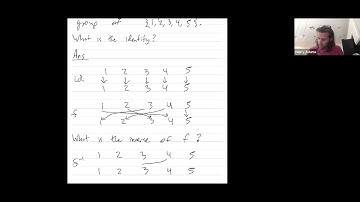 group of {1, 2, 3, 4, 5}.
What is the identity?
Ans
id 1 2 3 4 5
1 2 3 4 5
f 1 2 3 4 5
1 2 3 4 5
What is the inverse of f?
f⁻¹ 1 2 3 4 5
1 2 3 4 5